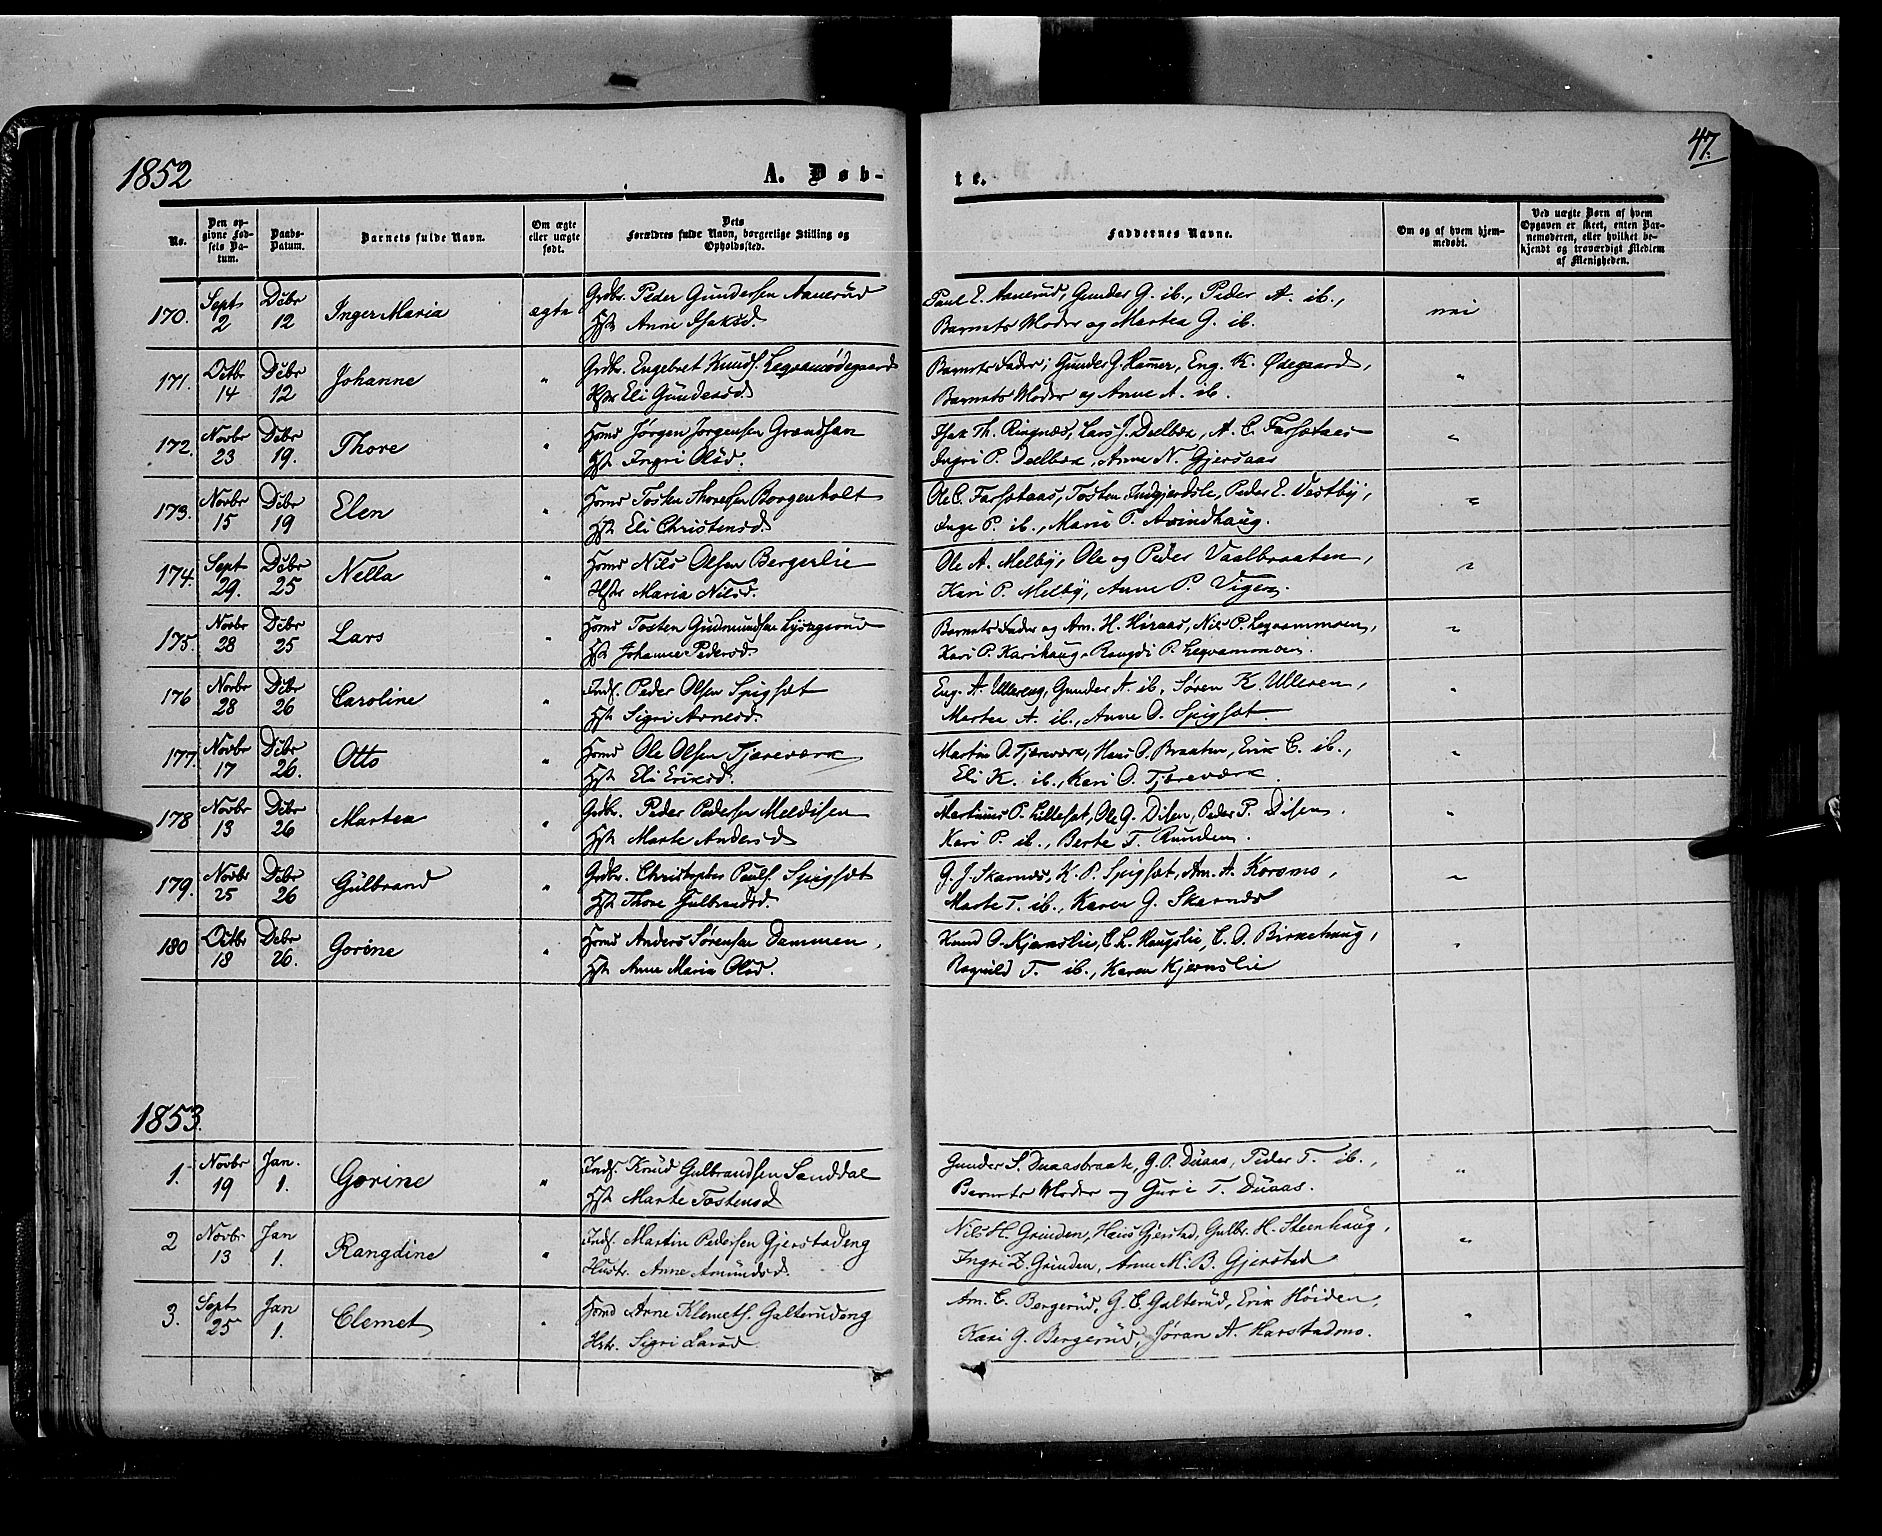 1852
A. Døb-
te.
47.
No.
Den op-
givne Fød-
sels Da-
tum.
Daabs-
Datum.
Barnets fulde Navn.
Om ægte
eller uægte
født.
Dets
Forældres fulde Navn, borgerlige Stilling og
Opholdssted.
Faddernes Navne.
Om og af hvem hjem-
medøbt.
Ved uægte Børn af hvem
Opgaven er skeet, enten Bar-
nemoderen, eller hvilket be-
kjendt og troværdigt Medlem
af Menigheden.
170. Sept 2 Dcbr 12 Inger Maria ægte Grdbr. Peder Gundersen Aanerud
Hst. Anne Isaksd.
Paul E. Aanerud, Gunder G. ib., Peder A. ib.,
Barnets Moder og Martea G. ib.
nei
171. Octbr 14 Dcbr 12 Johanne " Grdbr. Engebret Knuds. Legvamødegaard
Hstr Eli Gundersd.
Barnets Fader, Gunder G. Ramer, Eng. K. Ødegaard,
Barnets Moder og Anne A. ib.
"
172. Novbr 23 Dcbr 19. Thore " Hsmd Jørgen Jørgensen Grandsan
Hst. Ingri Olsd.
Isak Th. Ringnæs, Lars J. Doelbæk, A. C. Farsætaas
Ingri P. Doelbæk, Anne N. Gjersaas
"
173. Novbr 15 Dcbr 19 Elen " Hsmd Tosten Thoresen Borgenholt
Hst. Eli Christensd.
Ole C. Farsætaas, Tosten Indgjerdsle, Peder E. Vestby,
Inge P. ib., Mari T. Arindhaug.
"
174. Sept 29. Dcbr 25 Nella " Hsmd Nils Olsen Bergerlie
Hstr Maria Nilsd.
Ole A. Melby, Ole og Peder Vaalbraaten,
Kari P. Melby, Anne P. Viger.
"
175. Novbr 28 Dcbr 25 Lars " Hsmd Tosten Gudmundsen Lysagerud
Hst. Johanne Pedersd.
Barnets Fader og Am. H. Høraas, Nils P. Legvammoen,
Kari P. Karihaug, Rangdi P. Legvammoen.
"
176 Novbr 28 Dcbr 26 Caroline " Inds. Peder Olsen Spigsæt
Hst. Sigri Arnesd.
Eng. A. Ullereng, Gunder A. ib., Søren K. Ulleren,
Martea A. ib., Anne O. Spigsæt.
"
177. Novbr 17 Dcbr 26. Otto " Hsmd Ole Olsen Tjæreværk
Hst. Eli Eriksd.
Martin O. Tjæreværk, Hans O. Braaten, Erik C. ib.,
Eli K. ib., Kari O. Tjæreværk.
"
178 Novbr 13 Dcbr 26 Martea " Grdbr. Peder Pedersen Meldisen
Hst. Marte Andersd
Martinus P. Lillesæt, Ole G. Disen, Peder P. Disen.
Kari P. ib., Berte T. Runden.
"
179. Novbr 25 Dcbr 26 Gulbrand " Grdbr. Christopher Pauls. Spigsæt
Hst. Thore Gulbrandsd.
G. J. Skarnæs, K. P. Spigsæt, Am. A. Korsmo,
Marte T. ib., Karen G. Skarnæs
"
180 Octbr 18 Dcbr 26. Gorine " Hsmd Anders Sørensen Dammen,
Hst. Anne Maria Olsd.
Knud O. Kjernslie, C. L. Haugslie, C. O. Birkehaug,
Ragnild T. ib., Karen Kjernslie
"
1853.
1. Novbr 19 Jan. 1. Gorine " Inds. Knud Gulbrandsen Sanddal
Hst. Marte Tostensd
Gunder S. Duaasbraate, G. P. Duaas, Peder T. ib.,
Barnets Moder og Guri T. Duaas.
"
2 Novbr 13 Jan 1. Rangdine " Inds. Martin Pedersen Gjerstadeng
Hustr. Anne Amundsd.
Nils H. Grinden, Hans Gjerstad, Gulbr. H. Steenhaug,
Ingri Z. Grinden, Anne M. B. Gjerstad
"
3. Sept 25 Jan 1. Clemet " Hsmd Arne Klemets. Galterudeng
Hstr. Sigri Larsd
Am. C. Bergerud, G. C. Galterud, Erik Høiden,
Kari G. Bergerud, Jøran A. Harstadmo.
"